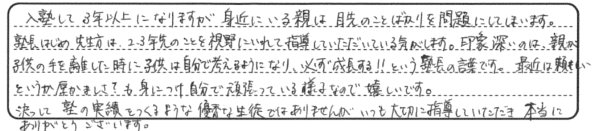 入塾して3年以上になりますが 身近にいる親は 目先のことばかりを問題にしてしまいます。
塾長はじめ、先生方は、2・3年先のことを視野にいれて指導していただいている気がします。印象深いのは、親が
子供の手を離した時に子供は自分で考えるようになり、必ず成長する!!という塾長の言葉です。最近は頼もしい
というか 度かまして?も身につけ自分で頑張っている様子なので嬉しいです。
決して 塾の実績をつくるような優秀な生徒ではありませんが いつも大切に指導していただき 本当に
ありがとうございます。